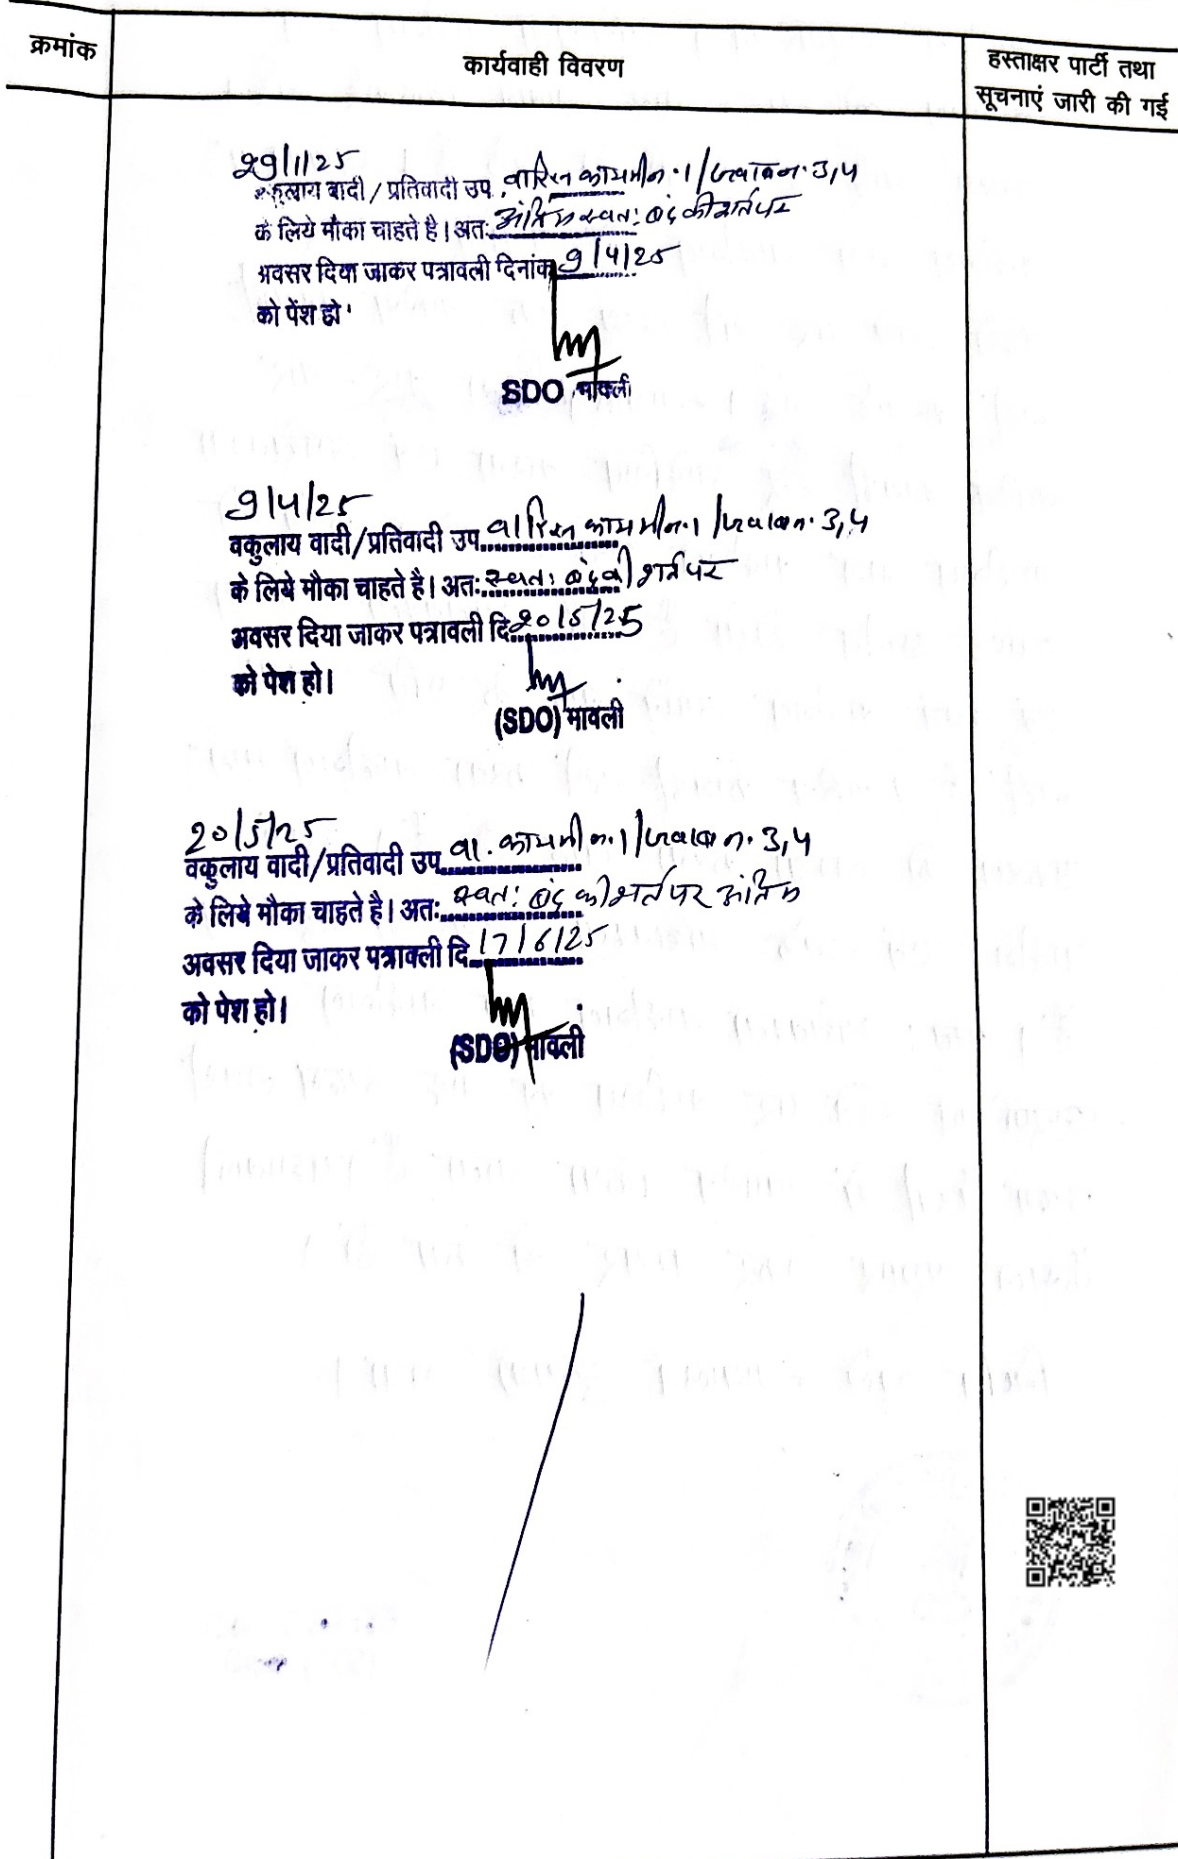 क्रमांक
कार्यवाही विवरण
हस्ताक्षर पार्टी तथा
सूचनाएं जारी की गई
29/1/25
वकुलाय वादी / प्रतिवादी उप. वारिसन कायमी न. 1 / जवाब न. 3,4
के लिये मौका चाहते है। अतः अंतिम स्वतः बंद की शर्त पर
अवसर दिया जाकर पत्रावली दिनांक 9/4/25
को पेंश हो
SDO मावली
9/4/25
वकुलाय वादी/प्रतिवादी उप. वारिसन कायमी न. 1 / जवाब न. 3,4
के लिये मौका चाहते है। अतः स्वतः बंद की शर्त पर
अवसर दिया जाकर पत्रावली दि. 20/5/25
को पेश हो।
(SDO) मावली
20/5/25
वकुलाय वादी/प्रतिवादी उप. वा. कायमी न. 1 / जवाब न. 3,4
के लिये मौका चाहते है। अतः स्वतः बंद की शर्त पर अंतिम
अवसर दिया जाकर पत्रावली दि. 17/6/25
को पेश हो।
(SDO) मावली